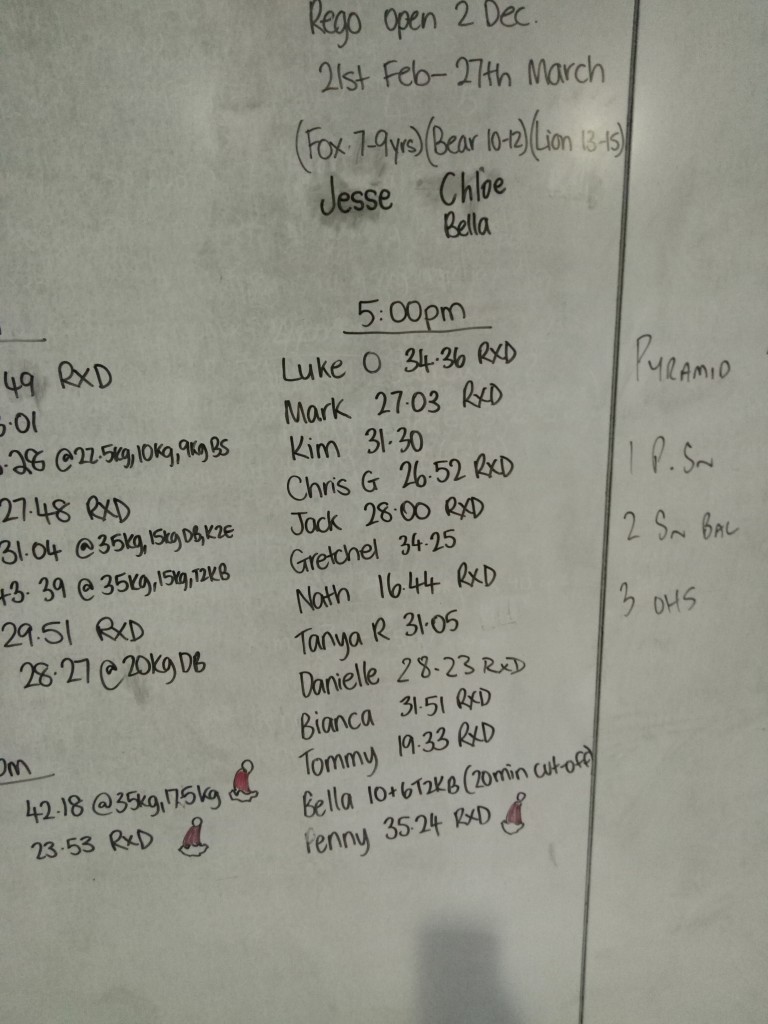 Rego open 2 Dec.
21st Feb - 27th March
(Fox 7-9yrs) (Bear 10-12) (Lion 13-15)
Jesse Chloe
Bella
49 RXD
.01
.28 @22.5kg, 10kg, 9kg BS
27.48 RXD
31.04 @35kg, 15kg DB, K2E
3.39 @35kg, 15kg, T2KB
29.51 RXD
28.27 @20kg DB
pm
42.18 @35kg, 17.5kg
23.53 RXD
5:00pm
Luke O 34.36 RXD
Mark 27.03 RXD
Kim 31.30
Chris G 26.52 RXD
Jack 28.00 RXD
Gretchel 34.25
Nath 16.44 RXD
Tanya R 31.05
Danielle 28.23 RXD
Bianca 31.51 RXD
Tommy 19.33 RXD
Bella 10+6T2KB (20min cut-off)
Penny 35.24 RXD
PYRAMID
1 P. Sn
2 Sn BAL
3 OHS